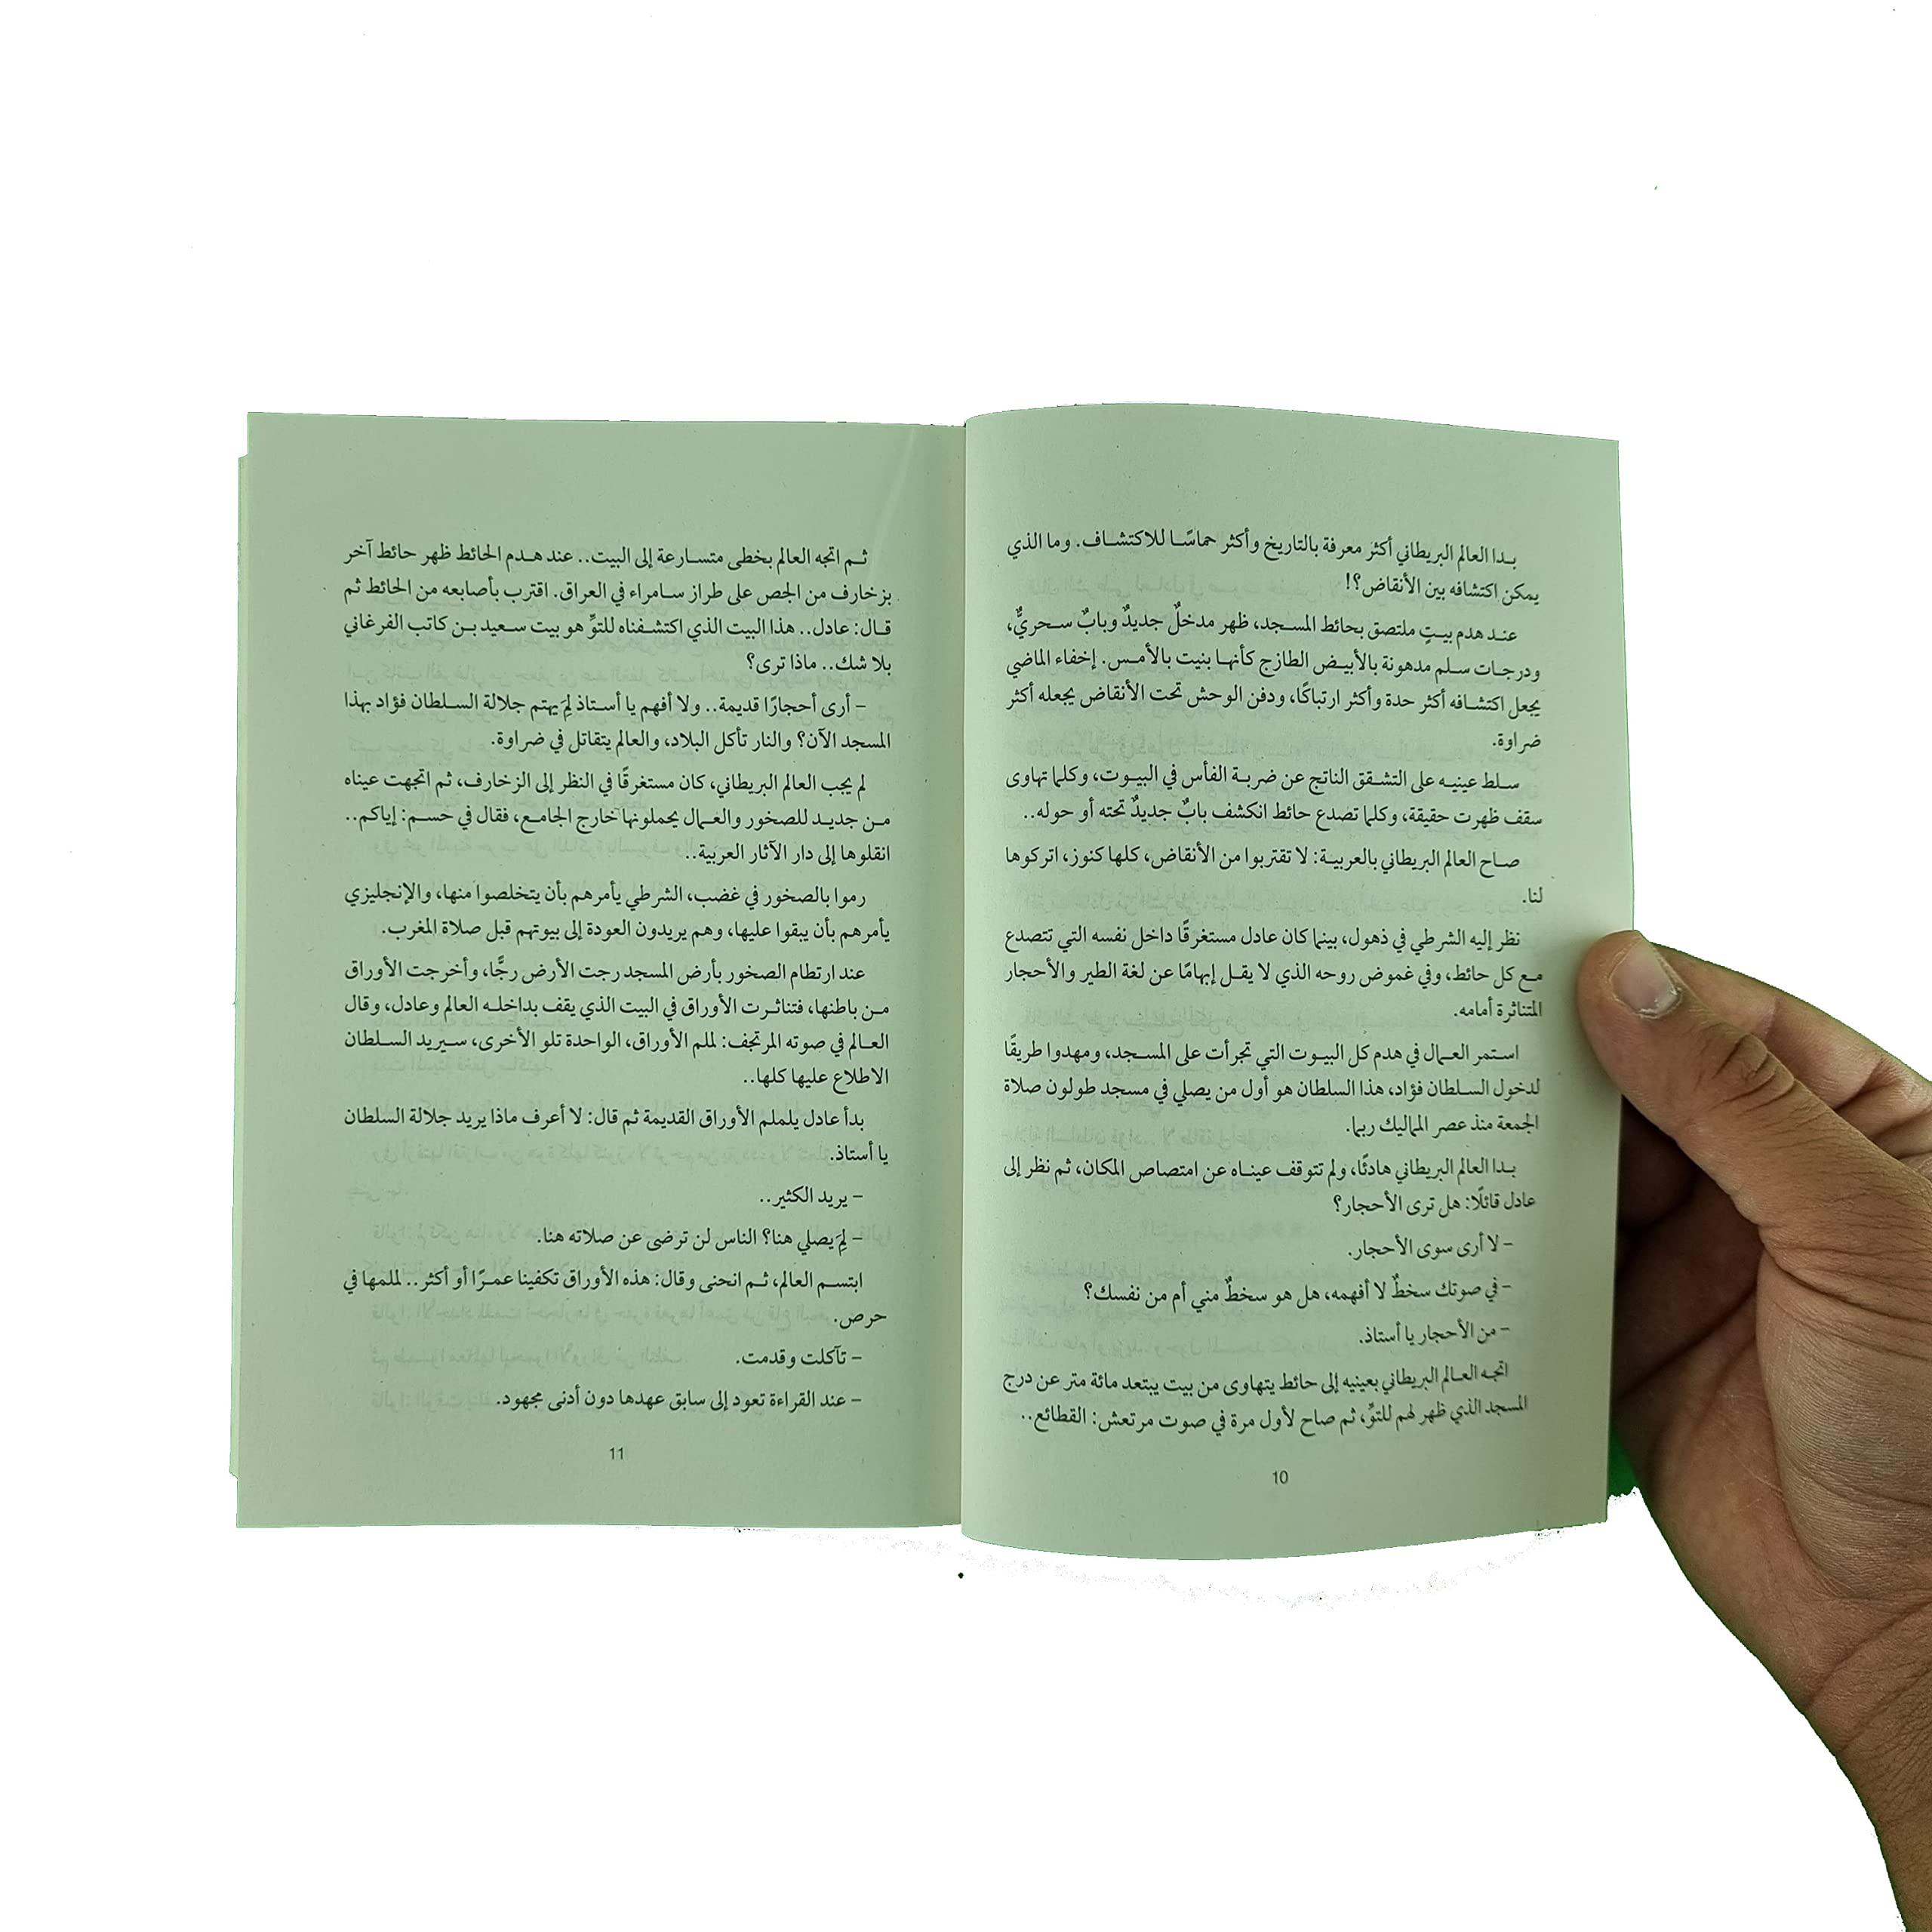 بدا العالم البريطاني أكثر معرفة بالتاريخ وأكثر حماسًا للاكتشاف. وما الذي
يمكن اكتشافه بين الأنقاض؟!
عند هدم بيتٍ ملتصق بحائط المسجد، ظهر مدخلٌ جديدٌ وبابٌ سحريٌّ،
ودرجات سلم مدهونة بالأبيض الطازج كأنها بنيت بالأمس. إخفاء الماضي
يجعل اكتشافه أكثر حدة وأكثر ارتباكًا، ودفن الوحش تحت الأنقاض يجعله أكثر
ضراوة.
سلط عينيه على التشقق الناتج عن ضربة الفأس في البيوت، وكلما تهاوى
سقف ظهرت حقيقة، وكلما تصدع حائط انكشف بابٌ جديدٌ تحته أو حوله..
صاح العالم البريطاني بالعربية: لا تقتربوا من الأنقاض، كلها كنوز، اتركوها
لنا.
نظر إليه الشرطي في ذهول، بينما كان عادل مستغرقًا داخل نفسه التي تتصدع
مع كل حائط، وفي غموض روحه الذي لا يقل إبهامًا عن لغة الطير والأحجار
المتناثرة أمامه.
استمر العمال في هدم كل البيوت التي تجرأت على المسجد، ومهدوا طريقًا
لدخول السلطان فؤاد، هذا السلطان هو أول من يصلي في مسجد طولون صلاة
الجمعة منذ عصر المماليك ربما.
بدا العالم البريطاني هادئًا، ولم تتوقف عيناه عن امتصاص المكان، ثم نظر إلى
عادل قائلًا: هل ترى الأحجار؟
– لا أرى سوى الأحجار.
– في صوتك سخطٌ لا أفهمه، هل هو سخطٌ مني أم من نفسك؟
– من الأحجار يا أستاذ.
اتجه العالم البريطاني بعينيه إلى حائط يتهاوى من بيت يبتعد مائة متر عن درج
المسجد الذي ظهر لهم للتوِّ، ثم صاح لأول مرة في صوت مرتعش: القطائع..
10
ثم اتجه العالم بخطى متسارعة إلى البيت.. عند هدم الحائط ظهر حائط آخر
بزخارف من الجص على طراز سامراء في العراق. اقترب بأصابعه من الحائط ثم
قال: عادل.. هذا البيت الذي اكتشفناه للتوِّ هو بيت سعيد بن كاتب الفرغاني
بلا شك.. ماذا ترى؟
– أرى أحجارًا قديمة.. ولا أفهم يا أستاذ لِمَ يهتم جلالة السلطان فؤاد بهذا
المسجد الآن؟ والنار تأكل البلاد، والعالم يتقاتل في ضراوة.
لم يجب العالم البريطاني، كان مستغرقًا في النظر إلى الزخارف، ثم اتجهت عيناه
من جديد للصخور والعمال يحملونها خارج الجامع، فقال في حسم: إياكم..
انقلوها إلى دار الآثار العربية..
رموا بالصخور في غضب، الشرطي يأمرهم بأن يتخلصوا منها، والإنجليزي
يأمرهم بأن يبقوا عليها، وهم يريدون العودة إلى بيوتهم قبل صلاة المغرب.
عند ارتطام الصخور بأرض المسجد رجت الأرض رجًّا، وأخرجت الأوراق
من باطنها، فتناثرت الأوراق في البيت الذي يقف بداخله العالم وعادل، وقال
العالم في صوته المرتجف: لملم الأوراق، الواحدة تلو الأخرى، سيريد السلطان
الاطلاع عليها كلها..
بدأ عادل يلملم الأوراق القديمة ثم قال: لا أعرف ماذا يريد جلالة السلطان
يا أستاذ.
– يريد الكثير..
– لِمَ يصلي هنا؟ الناس لن ترضى عن صلاته هنا.
ابتسم العالم، ثم انحنى وقال: هذه الأوراق تكفينا عمرًا أو أكثر.. لملمها في
حرص.
– تآكلت وقدمت.
– عند القراءة تعود إلى سابق عهدها دون أدنى مجهود.
11